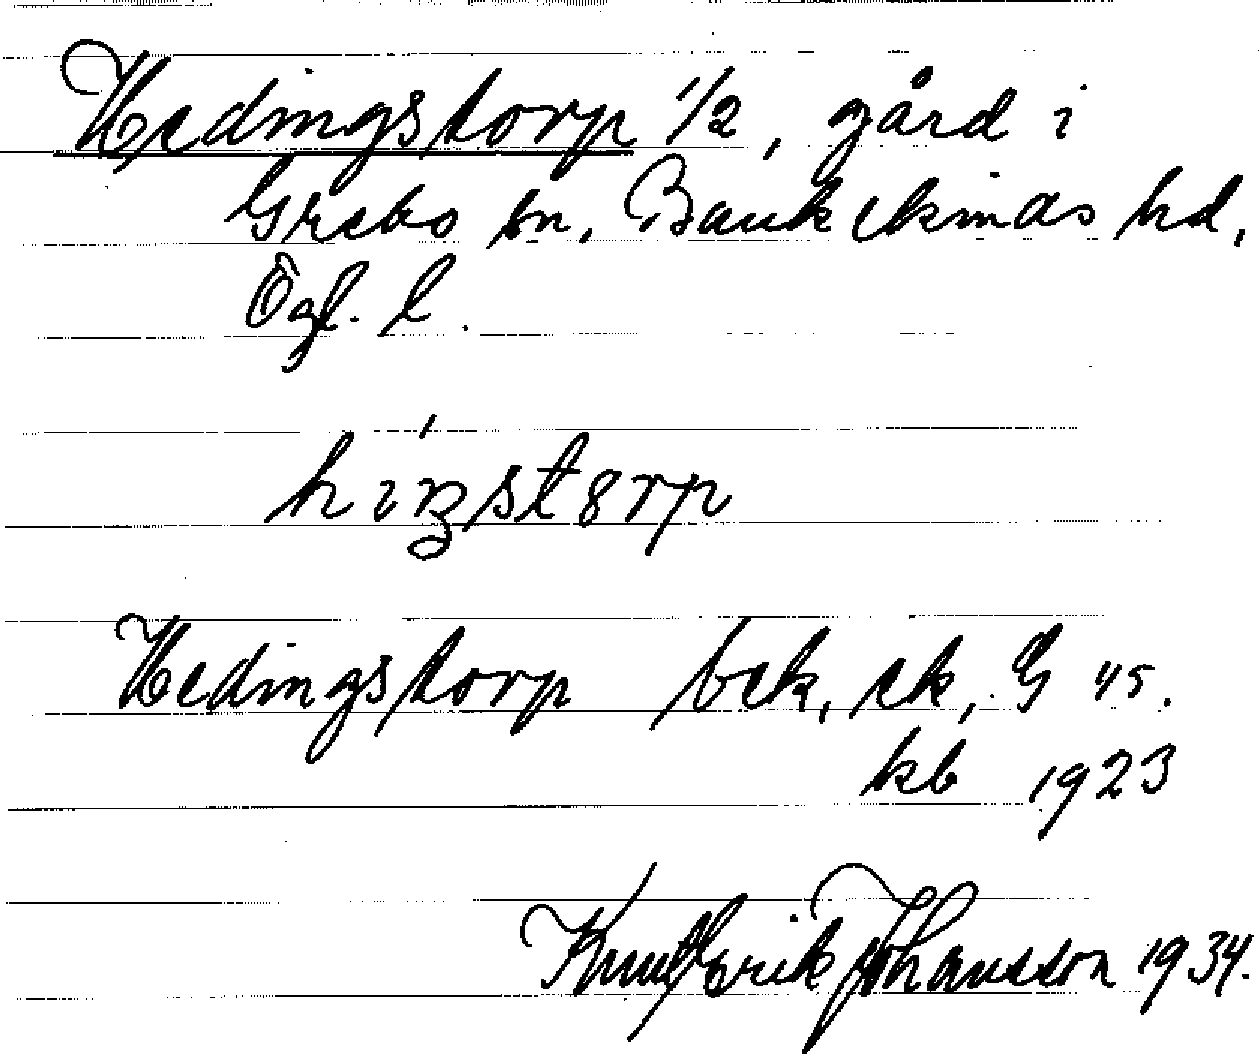 Hedingstorp 1/2, gård i
Grebo sn, Bankekinds hd,
Ögl. l.
hıŋstorp
Hedingstorp bek, ek, G 45.
kb 1923
Knut Erik Johansson 1934.